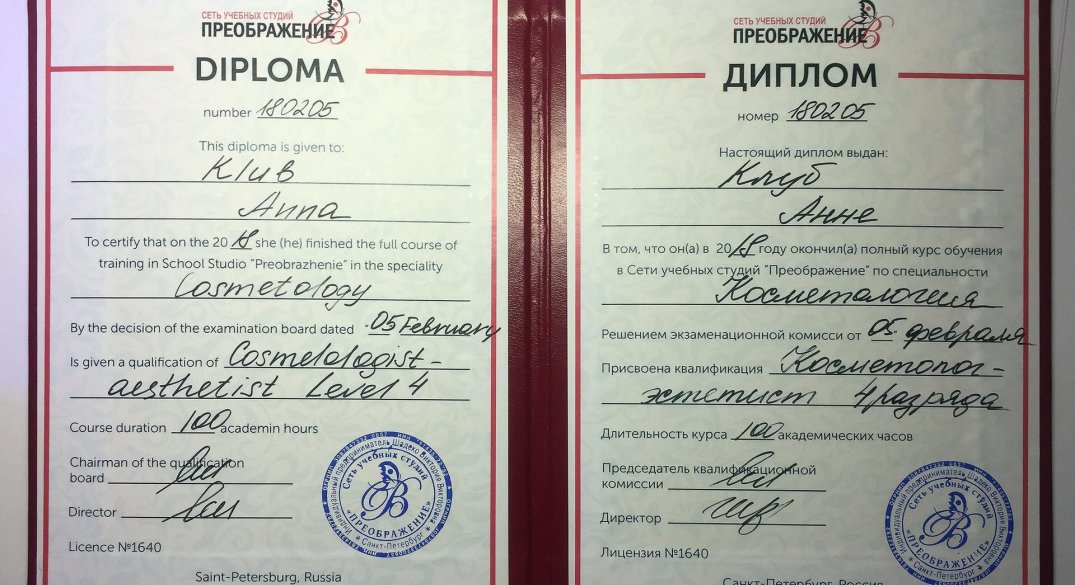 СЕТЬ УЧЕБНЫХ СТУДИЙ
ПРЕОБРАЖЕНИЕ
DIPLOMA
number 180205
This diploma is given to:
Klub
Anna
To certify that on the 2018 she (he) finished the full course of
training in School Studio "Preobrazhenie" in the speciality
Cosmetology
By the decision of the examination board dated 05 February
Is given a qualification of Cosmetologist-
aesthetist Level 4
Course duration 100 academin hours
Chairman of the qualification
board
Director
Licence №1640
Saint-Petersburg, Russia
Индивидуальный предприниматель Шадеко Виктория Викторовна
Сеть учебных студий
«ПРЕОБРАЖЕНИЕ»
Санкт-Петербург
СЕТЬ УЧЕБНЫХ СТУДИЙ
ПРЕОБРАЖЕНИЕ
ДИПЛОМ
номер 180205
Настоящий диплом выдан:
Клуб
Анне
В том, что он(а) в 2018 году окончил(а) полный курс обучения
в Сети учебных студий "Преображение" по специальности
Косметология
Решением экзаменационной комисси от 05 февраля
Присвоена квалификация Косметолог-
эстетист 4 разряда
Длительность курса 100 академических часов
Председатель квалификационной
комиссии
Директор
Лицензия №1640
Санкт-Петербург, Россия
Индивидуальный предприниматель Шадеко Виктория Викторовна
Сеть учебных студий
«ПРЕОБРАЖЕНИЕ»
Санкт-Петербург